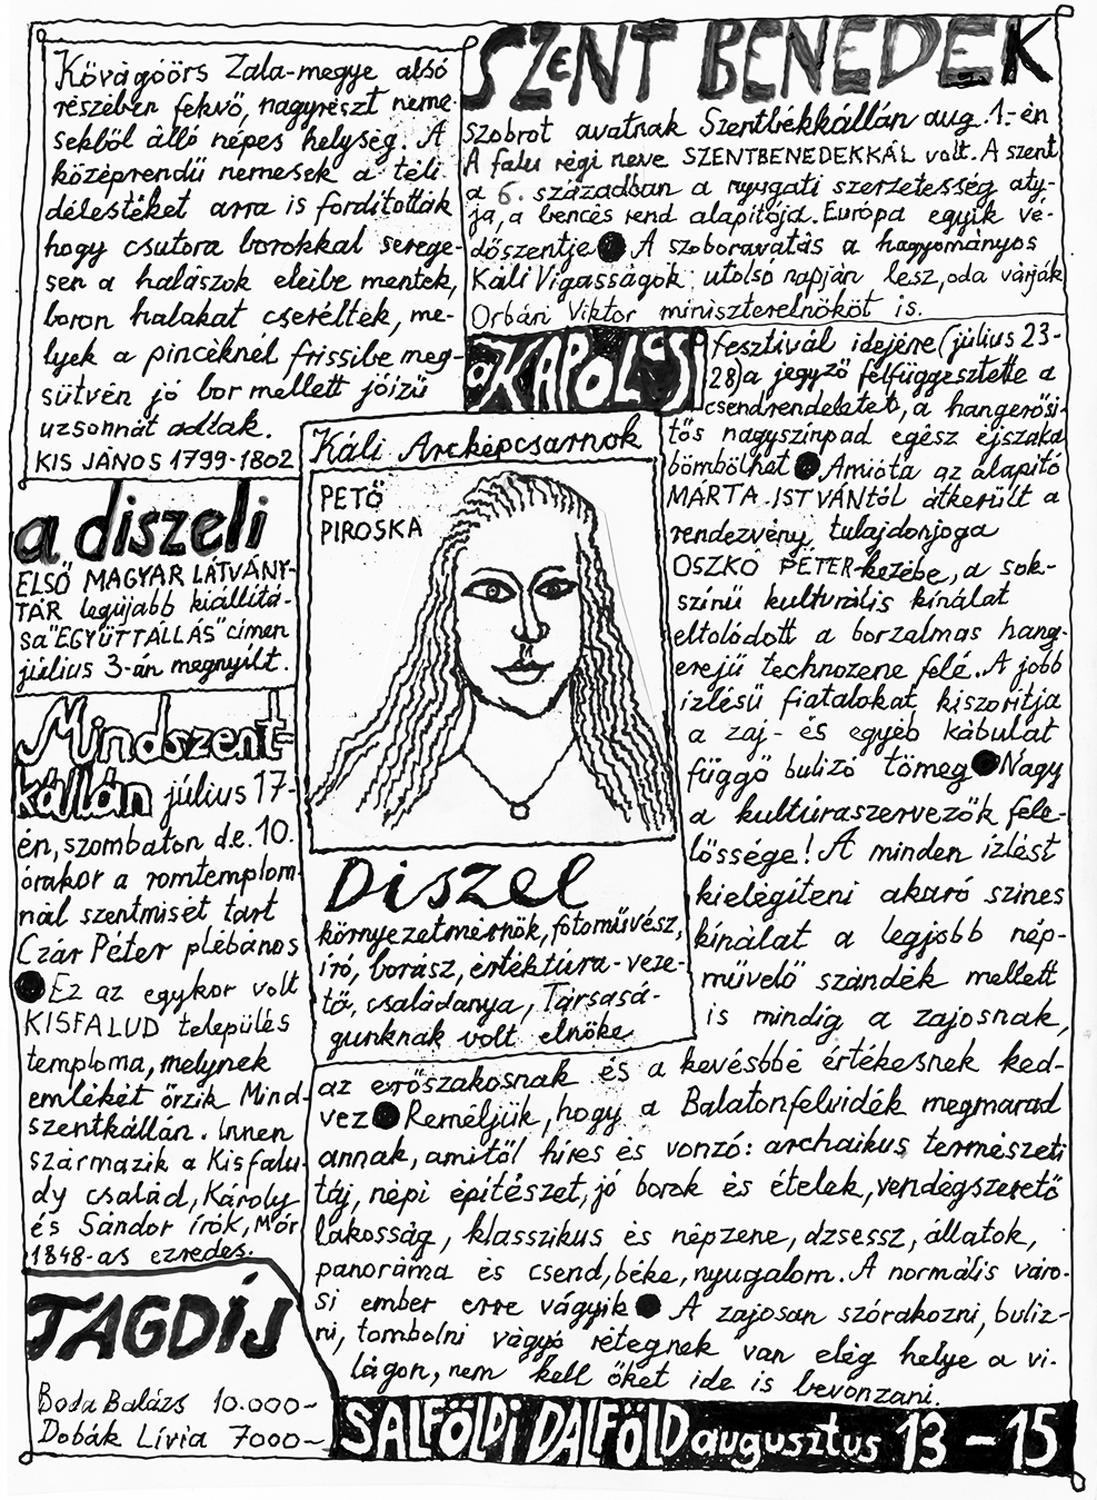 Kővágóörs Zala-megye alsó
részében fekvő, nagyrészt neme-
sekből álló népes helység. A
középrendű nemesek a téli
délestéket arra is fordították
hogy csutora borokkal serege-
sen a halászok eleibe mentek,
boron halakat cseréltek, me-
lyek a pincéknél frissibe meg-
sütvén jó bor mellett jóízű
uzsonnát adtak.
KIS JÁNOS 1799-1802
SZENT BENEDEK
szobrot avatnak Szentbékkállán aug. 1.-én
A falu régi neve SZENTBENEDEKKÁL volt. A szent
a 6. században a nyugati szerzetesség aty-
ja, a bencés rend alapítója. Európa egyik vé-
dőszentje ● A szoboravatás a hagyományos
Káli Vigasságok utolsó napján lesz, oda várják
Orbán Viktor miniszterelnököt is.
a KAPOLCSI fesztivál idejére (július 23-
28) a jegyző felfüggesztette a
csendrendeletet, a hangerősí-
tős nagyszínpad egész éjszaka
bömbölhet ● Amióta az alapító
MÁRTA ISTVÁNtól átkerült a
rendezvény tulajdonjoga
OSZKÓ PÉTER kezébe, a sok-
színű kulturális kínálat
eltolódott a borzalmas hang-
erejű technozene felé. A jobb
ízlésű fiatalokat kiszorítja
a zaj- és egyéb kábulat
függő bulizó tömeg ● Nagy
a kultúraszervezők fele-
lőssége! A minden ízlést
kielégíteni akaró színes
kínálat a legjobb nép-
művelő szándék mellett
is mindig a zajosnak,
az erőszakosnak és a kevésbbé értékesnek ked-
vez ● Reméljük, hogy a Balatonfelvidék megmarad
annak, amitől híres és vonzó: archaikus természeti
táj, népi építészet, jó borok és ételek, vendégszerető
lakosság, klasszikus és népzene, dzsessz, állatok,
panoráma és csend, béke, nyugalom. A normális váro-
si ember erre vágyik ● A zajosan szórakozni, buliz-
ni, tombolni vágyó rétegnek van elég helye a vi-
lágon, nem kell őket ide is bevonzani.
Káli Arcképcsarnok
PETŐ
PIROSKA
Diszel
környezetmérnök, fotóművész,
író, borász, értéktúra-veze-
tő, családanya, Társasá-
gunknak volt elnöke
a diszeli
ELSŐ MAGYAR LÁTVÁNY-
TÁR legújabb kiállítá-
sa "EGYÜTTÁLLÁS" címen
július 3-án megnyílt.
Mindszent-
kállán július 17-
én, szombaton d.e. 10.
órakor a romtemplom-
nál szentmisét tart
Czár Péter plébános
● Ez az egykor volt
KISFALUD település
temploma, melynek
emlékét őrzik Mind-
szentkállán. Innen
származik a Kisfalu-
dy család, Károly
és Sándor írók, Mór
1848-as ezredes.
TAGDÍJ
Boda Balázs 10.000-
Dobák Lívia 7000-
SALFÖLDI DALFÖLD augusztus 13 - 15